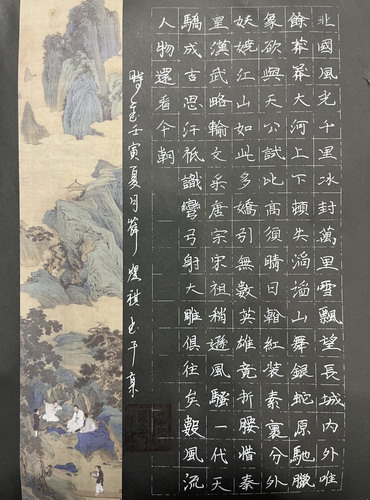 北國風光千里冰封萬里雪飄望長城內外唯
餘莽莽大河上下頓失滔滔山舞銀蛇原馳臘
象欲與天公試比高須晴日看紅裝素裹分外
妖嬈江山如此多嬌引無數英雄競折腰惜秦
皇漢武略輸文采唐宗宋祖稍遜風騷一代天
驕成吉思汗祇識彎弓射大雕俱往矣數風流
人物還看今朝
壬寅夏月薛煜祺書於京